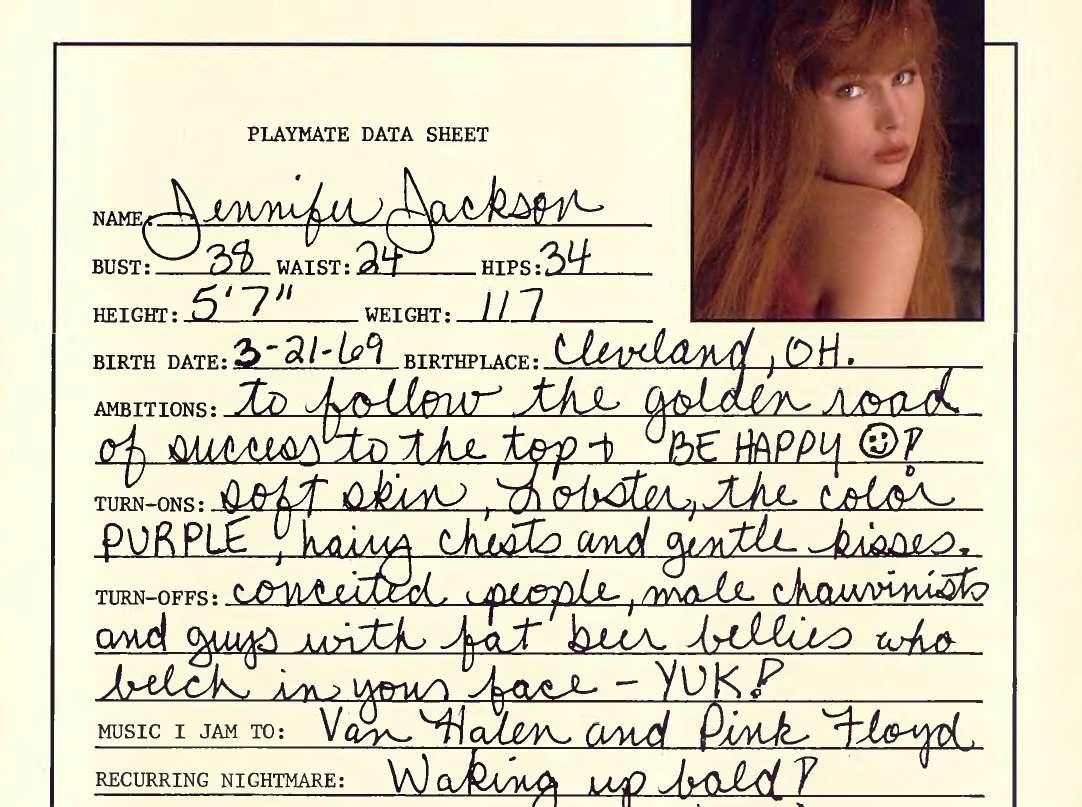 PLAYMATE DATA SHEET
NAME: Jennifer Jackson
BUST: 38 WAIST: 24 HIPS: 34
HEIGHT: 5'7" WEIGHT: 117
BIRTH DATE: 3-21-69 BIRTHPLACE: Cleveland, OH.
AMBITIONS: to follow the golden road
of success to the top + BE HAPPY ☺!
TURN-ONS: soft skin, Lobster, the color
PURPLE, hairy chests and gentle kisses.
TURN-OFFS: conceited people, male chauvinists
and guys with fat beer bellies who
belch in your face – YUK!
MUSIC I JAM TO: Van Halen and Pink Floyd
RECURRING NIGHTMARE: Waking up bald!